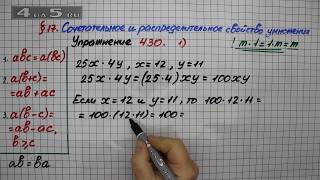 § 17. Сочетательное и распределительное свойство умножения
Упражнение 430. 1) ! m·1=1·m=m
1. abc=a(bc)
2. a(b+c)=
=ab+ac
3. a(b-c)=
=ab-ac,
b>c
ab=ba
25x·4y, x=12, y=11
25x·4y=(25·4)xy=100xy
Если x=12 и y=11, то 100·12·11=
=100·(12·11)=100=